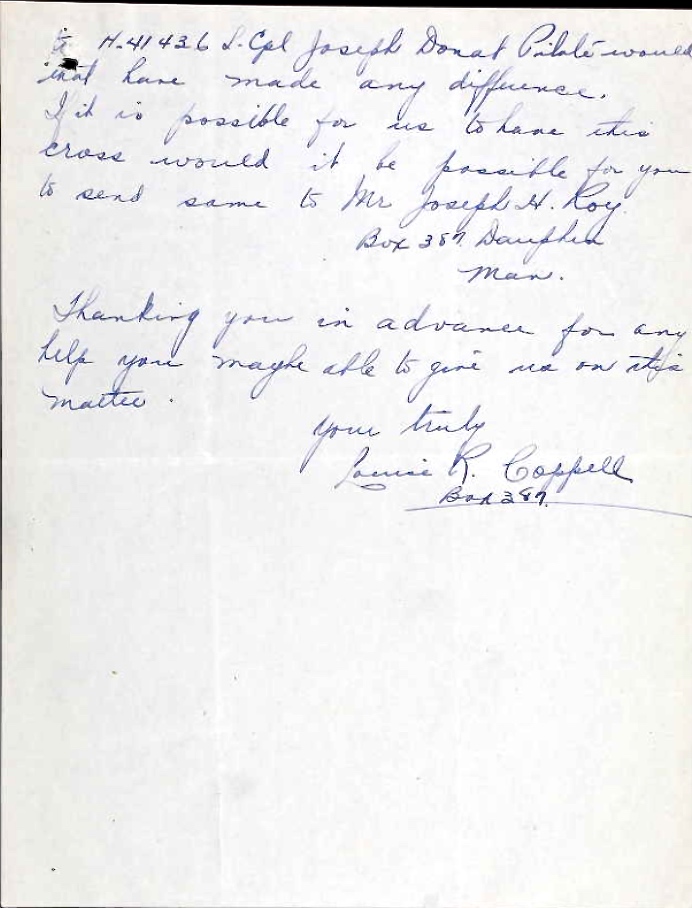 to H-41436 L. Cpl Joseph Donat Pilote would
that have made any difference.
If it is possible for us to have this
cross would it be possible for you
to send same to Mr Joseph H. Roy.
Box 387. Dauphin
Man.
Thanking you in advance for any
help you maybe able to give us on this
matter.
Your truly
Louise R. Coppell
Box 387.